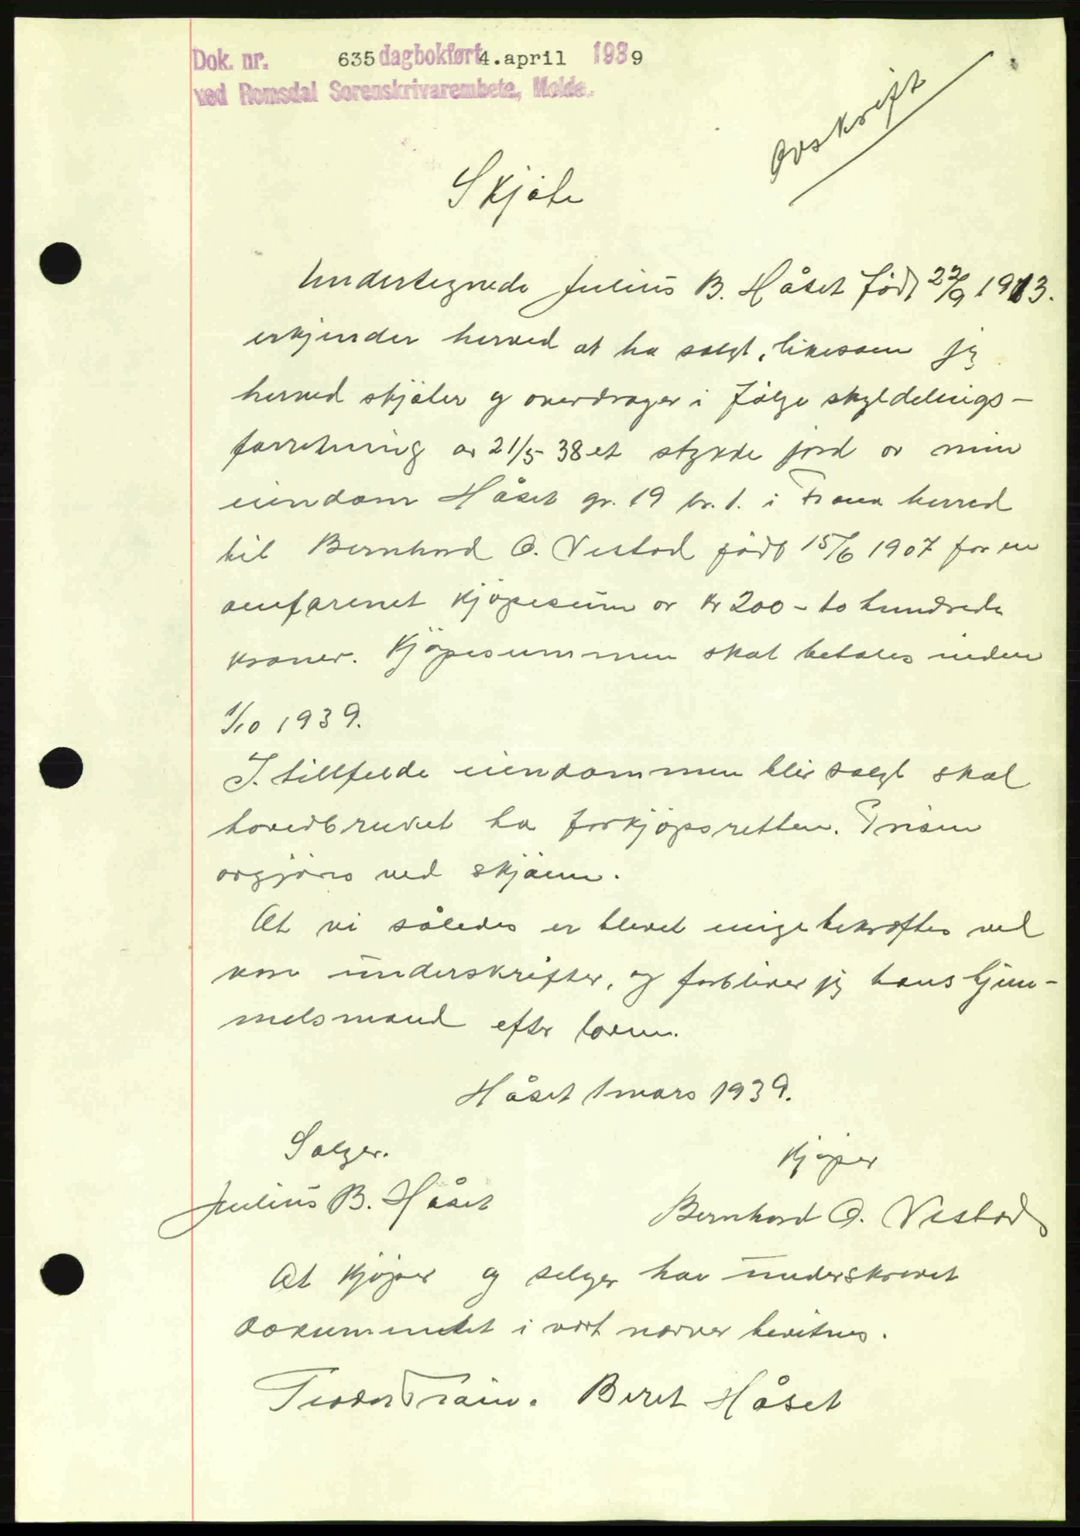 Dok. nr. 635 dagbokført 4.april 1939
ved Romsdal Sorenskrivarembete, Molde.
Avskrift
Skjøte
Undertegnede Julius B. Håset født 22/9 1913.
erkjender herved at ha solgt, likesom jeg
herved skjøter og overdrager i følge skyldelings-
forretning av 21/5 38 et stykke jord av min
eiendom Håset gr. 19 br. 1. i Fræna herred
til Bernhard O. Vestad født 15/6 1907 for en
omforenet kjøpesum av kr 200 - to hundrede
kroner. Kjøpesummen skal betales inden
1/10 1939.
I tillfelde eiendommen blir solgt skal
hovedbruket ha forkjøpsretten. Prisen
avgjøres ved skjønn.
At vi således er blevet enige bekræftes ved
vore underskrifter, og forbliver jeg hans hjem-
melsmand efter loven.
Håset 1 mars 1939.
Selger. Kjøper
Julius B. Håset Bernhard O. Vestad
At kjøper og selger har underskrevet
dokumentet i vort nærvær bevitnes.
Beret Håset